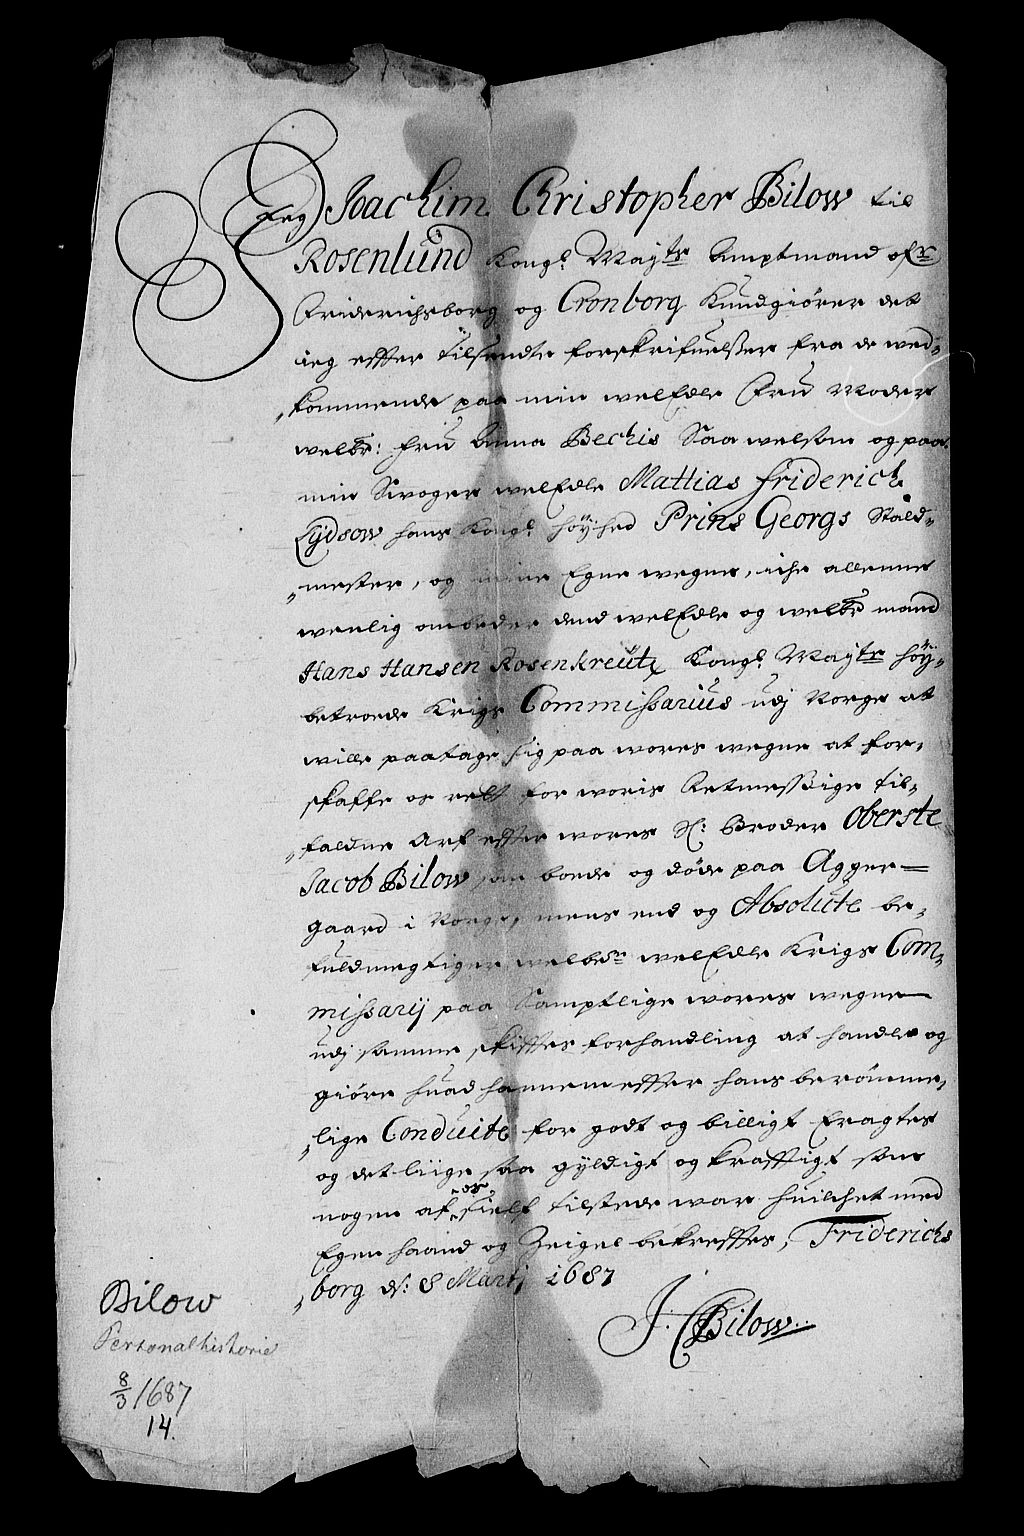 Jeg Joachim Christopher Bilow til
Rosenlund Kongl. Mayts Amptmand ofr
Friderichsborg og Cronborg Kundgiører det
ieg effter tilsendte forskrifuelsser fra de wed-
kommende paa min welEdle Fru Moder
welbr: fru Anna Bechis Saa welsom og paa
min Swoger welEdle Mattias friderich
Lydsow hans Kongl. Høyhed Prins Georgs Stald-
mester, og mine Egne wegne, iche allenne
wenlig ombeder dend welEdle og welbr mand
Hans Hansen Rosenkreütz Kongl. Mayts høy-
betroede Krigs Commissarius udj Norge at
wille paatage sig paa wores wegne at for-
skaffe os rett for woris Retmessige til-
faldne Arf effter wores Sl: Broder Oberste
Jacob Bilow som boede og døde paa Agger-
gaard i Norge, mens end og Absolute be-
fuldmegtiger welbrn welEdle Krigs Com-
missarij paa Samptlige wores wegne
udj samme skifftes forhandling at handle og
giøre huad hannem effter hans berømme-
lige Conduite for godt og billigt Eragtes
og det liige saa gyldigt og krafftigt som
nogen af os sielf tilstede war huilchet med
Egen haand og Zeigel bekrefftes, Friderichs
borg d: 8 Martj 1687
J. C. Bilow
Bilow
Personalhistorie
8/3 1687
14.